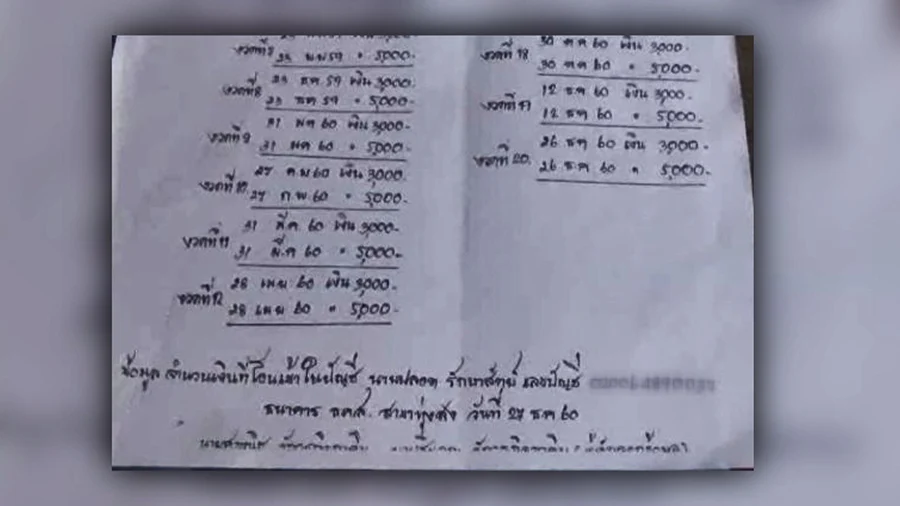 งวดที่ 7
23 พ.ย 59 " 5,000-
งวดที่ 8
23 ธ.ค 59 เงิน 3,000-
23 ธ.ค 59 " 5,000-
งวดที่ 9
31 ม.ค 60 เงิน 3,000-
31 ม.ค 60 " 5,000-
งวดที่ 10
27 ก.พ 60 เงิน 3,000-
27 ก.พ. 60 " 5,000-
งวดที่ 11
31 มี.ค 60 เงิน 3,000-
31 มี.ค 60 " 5,000-
งวดที่ 12
28 เม.ย 60 เงิน 3,000-
28 เม.ย 60 " 5,000-
งวดที่ 18
30 ต.ค 60 เงิน 3,000-
30 ต.ค 60 " 5,000-
งวดที่ 19
12 ธ.ค 60 เงิน 3,000-
12 ธ.ค 60 " 5,000-
งวดที่ 20
26 ธ.ค 60 เงิน 3,000-
26 ธ.ค 60 " 5,000-
ข้อมูล จำนวนเงินที่โอนเข้าในบัญชี นายปลอด รักษาสัตย์ เลขบัญชี
ธนาคาร ธกส. สาขาทุ่งสง วันที่ 27 ธ.ค 60